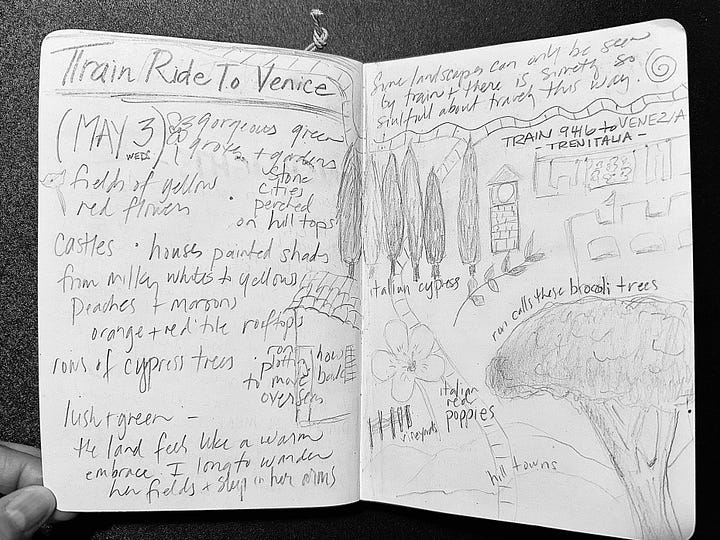 Train Ride To Venice
(MAY 3)
WEDS
gorgeous green
groves + gardens
fields of yellow
red flowers
stone
cities
perched
on hill tops
castles • houses painted shads
from milky whites to yellows
peaches + maroons
orange + red tile rooftops
rows of cypress trees •
ron
plottin how
to move back
overseas
lush + green –
the land feels like a warm
embrace. I long to wander
her fields + sleep in her arms
Some landscapes can only be seen
by train + there is smthg so
soulfull about travels this way.
TRAIN 9416 to VENEZIA
- TRENITALIA -
italian cypress
ron calls these brocoli trees
italian
red
poppies
vineyards
hill towns